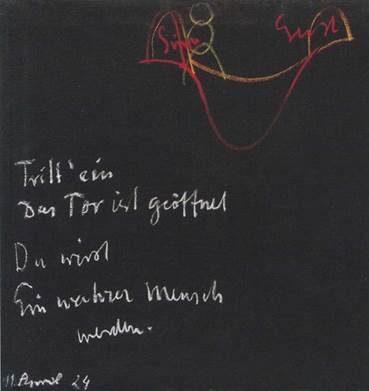 Geist
Tritt ein
Das Tor ist geöffnet
Du wirst
Ein wahrer Mensch
werden.
11. April 24